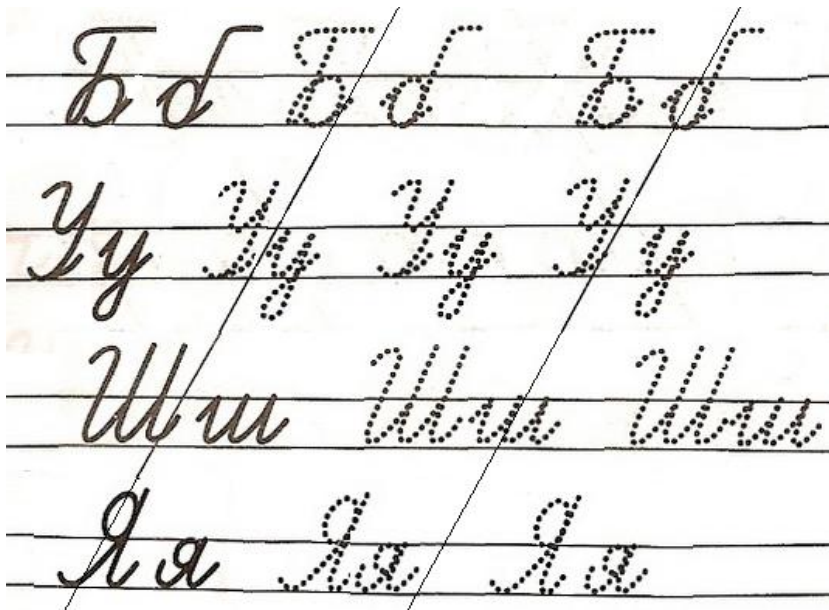 Бб Бб Бб
Уу Уу Уу Уу
Шш Шш Шш
Яя Яя Яя